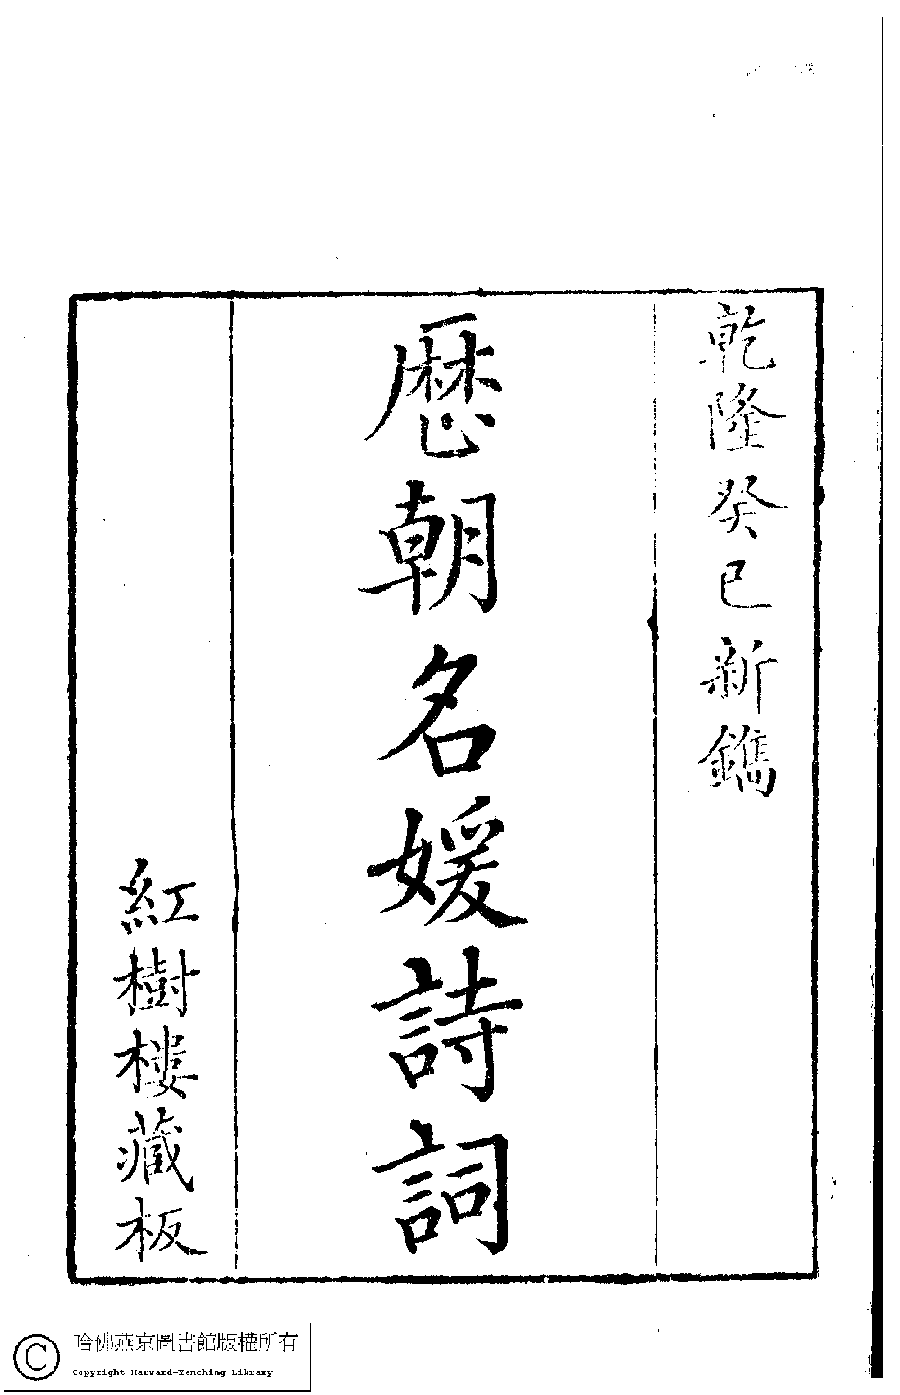 乾隆癸巳新鐫
歷朝名媛詩詞
紅樹樓藏板
© 哈佛燕京圖書館版權所有
Copyright Harvard-Yenching Library